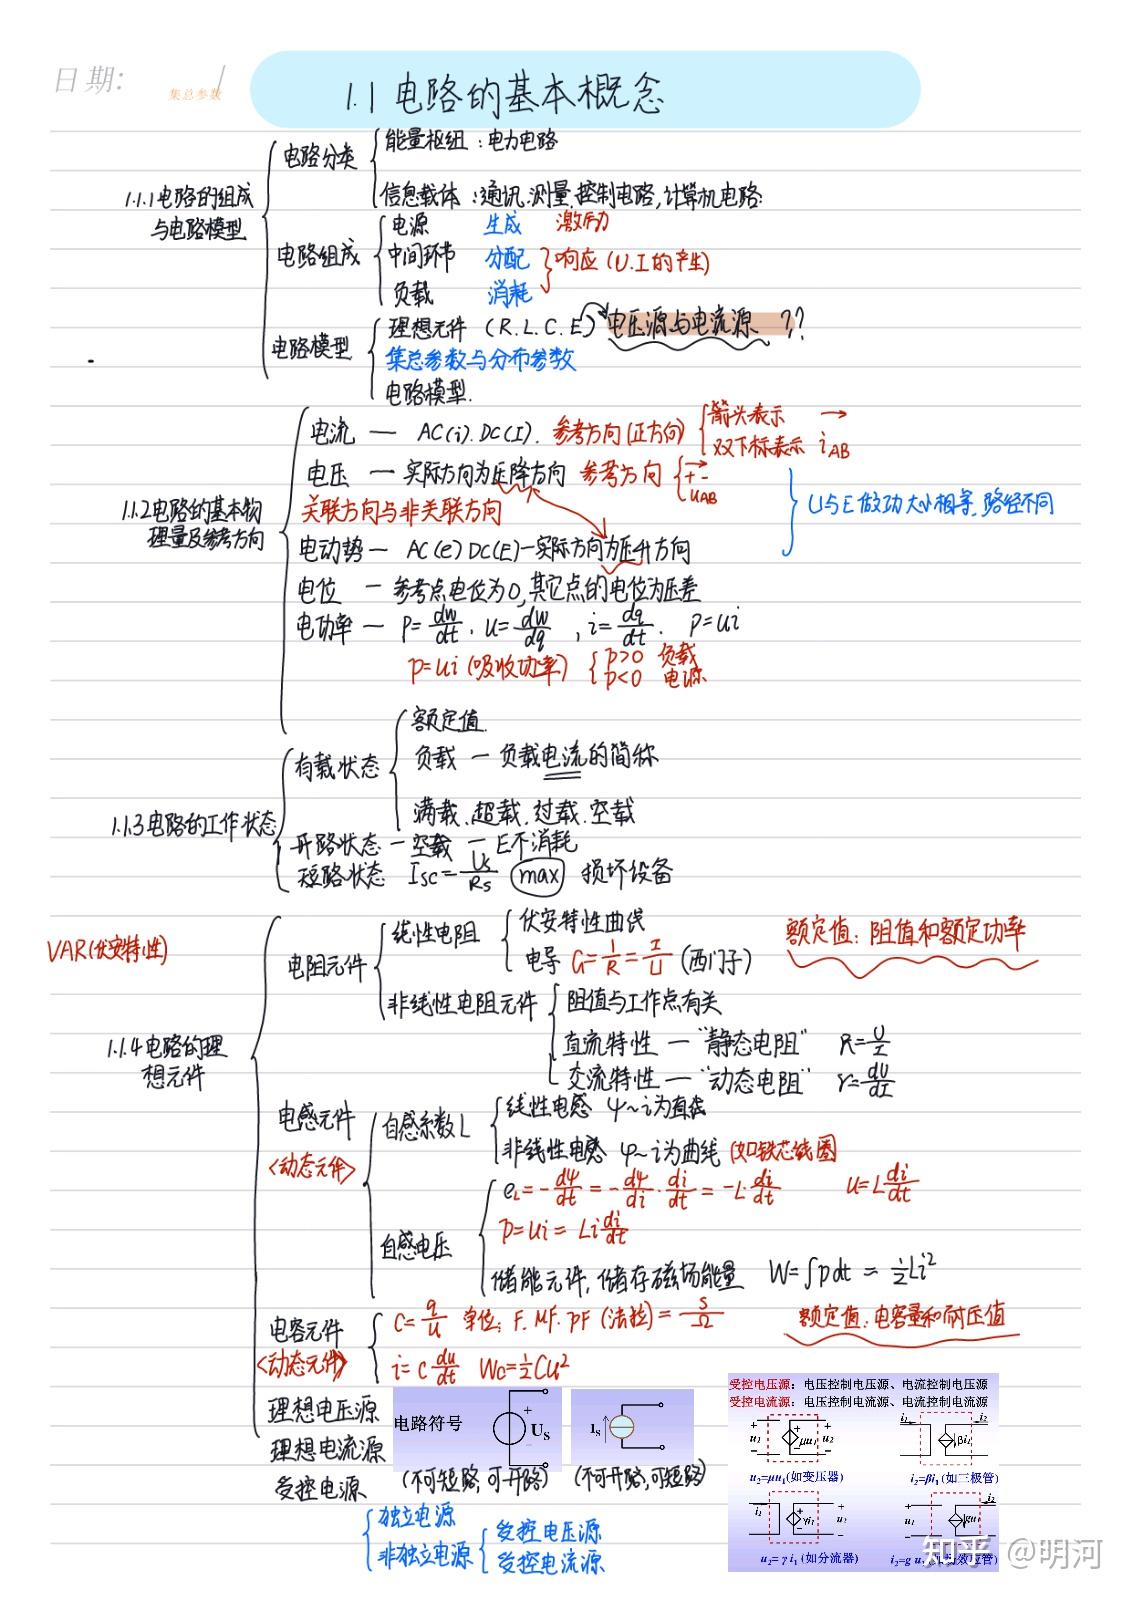 日期:
集总参数
1.1 电路的基本概念
1.1.1 电路的组成
与电路模型
电路分类
能量枢纽：电力电路
信息载体：通讯.测量.控制电路,计算机电路
电路组成
电源 生成 激励
中间环节 分配
负载 消耗
响应 (U.I的产生)
电路模型
理想元件 (R.L.C.E) 电压源与电流源 ??
集总参数与分布参数
电路模型.
1.1.2 电路的基本物
理量及参考方向
电流 — AC(i).DC(I). 参考方向(正方向)
箭头表示 →
双下标表示 iAB
电压 — 实际方向为压降方向 参考方向
+ -
uAB
关联方向与非关联方向
U与E做功大小相等,路径不同
电动势 — AC(e) DC(E) — 实际方向为压升方向
电位 — 参考点电位为0,其它点的电位为压差
电功率 — P=dw/dt . u=dw/dq , i=dq/dt . p=ui
p=ui (吸收功率)
p>0 负载
p<0 电源
1.1.3 电路的工作状态
有载状态
额定值.
负载 — 负载电流的简称
满载.超载.过载.空载
开路状态 — 空载 — E不消耗
短路状态 Isc=Us/Rs (max) 损坏设备
VAR(伏安特性)
1.1.4 电路的理
想元件
电阻元件
线性电阻
伏安特性曲线
电导 G=1/R=I/U (西门子)
额定值：阻值和额定功率
非线性电阻元件
阻值与工作点有关
直流特性 — "静态电阻" R=U/I
交流特性 — "动态电阻" r=dU/dI
电感元件
<动态元件>
自感系数L
线性电感 ψ~i为直线
非线性电感 φ~i为曲线 (如铁芯线圈
自感电压
eL=-dψ/dt=-dψ/di·di/dt=-L·di/dt u=L di/dt
p=ui=Li di/dt
储能元件,储存磁场能量 W=∫pdt=1/2Li²
电容元件
<动态元件>
C=q/u 单位: F. MF. PF (法拉)=S/Ω
额定值：电容量和耐压值
i=C du/dt Wc=1/2Cu²
理想电压源
电路符号
+
US
-
IS
理想电流源
(不可短路,可开路) (不可开路,可短路)
受控电源
独立电源
非独立电源
受控电压源
受控电流源
受控电压源：电压控制电压源、电流控制电压源
受控电流源：电压控制电流源、电流控制电流源
+ u1 - μu1 + u2 -
i1 βi1 i2
u2=μu1(如变压器) i2=βi1(如三极管)
i1 γi1 + u2 -
+ u1 - gu i2
u2=γi1(如分流器)
知乎 @明河